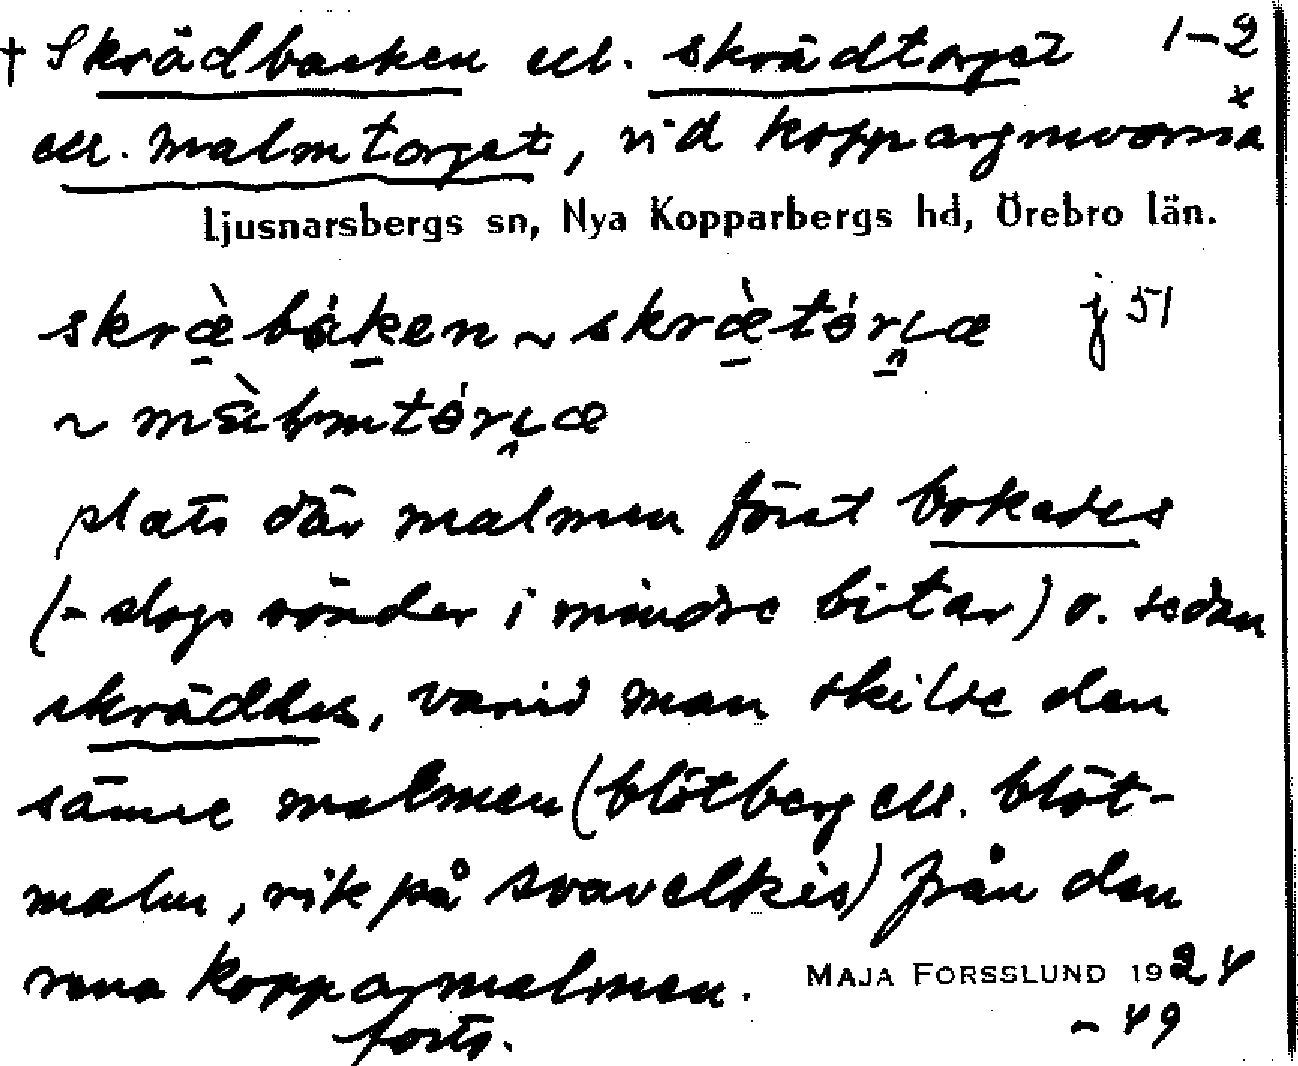 † Skrädbacken ell. skrädtorget 1–2
ell. malmtorget, vid koppargruvorna x
Ljusnarsbergs sn, Nya Kopparbergs hd, Örebro län.
skræ̀båken ~ skræ̀tórɩæ j 51
~ màɫmtórɩæ
plats där malmen först bokades
(- slogs sönder i mindre bitar) o. sedan
skräddes, varvid man skilde den
sämre malmen (blötberg ell. blöt-
malm, rik på svavelkis) från den
rena kopparmalmen. MAJA FORSSLUND 1924
forts. – 49